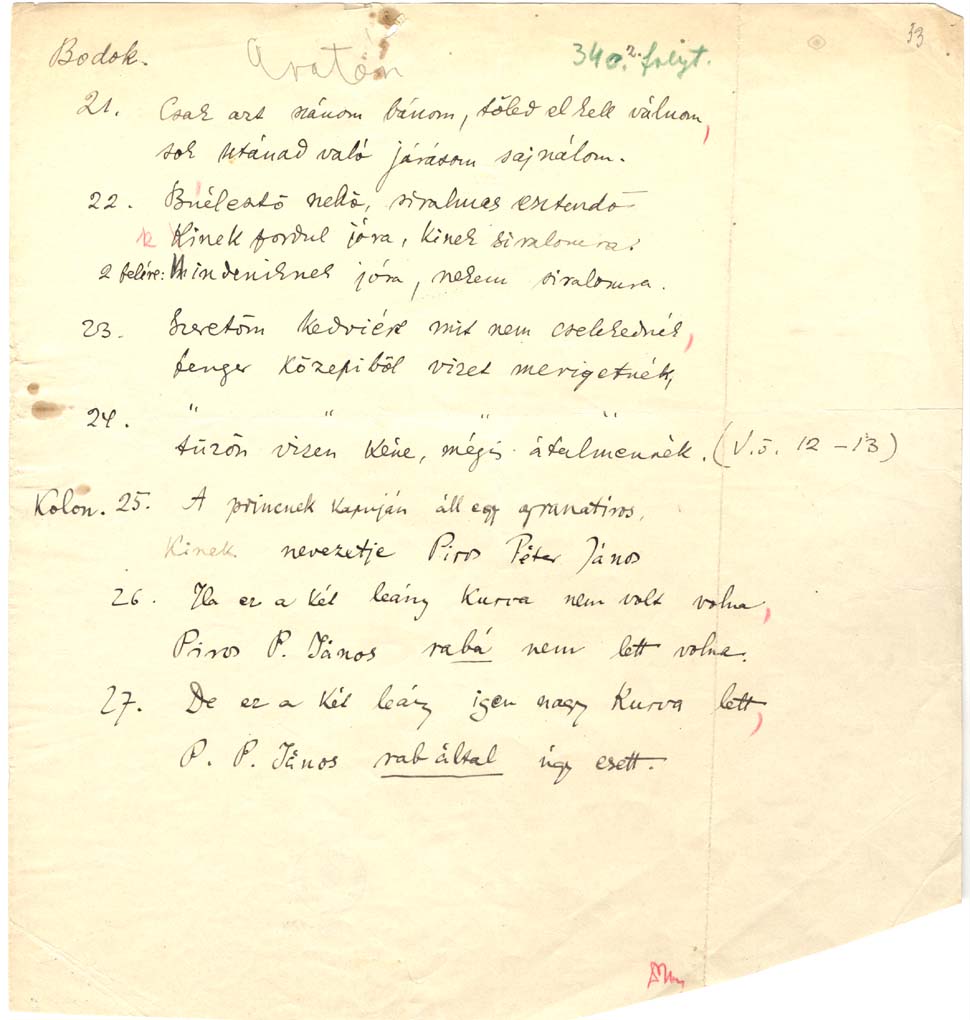 Bodok. Aratón 340. 2. folyt. 33
21. Csak azt szánom bánom, tőled el kell válnom,
sok utánad való járásom sajnálom.
22. Búélesztő nekő, siralmas esztendő
k Kinek fordul jóra, kinek siralomra?
2 felére: Mindeniknek jóra, nekem siralomra.
23. Szeretőm kedviért mit nem cselekednék,
tenger közepiből vizet merigetnék,
24. " " " "
tüzön vizen kéne, mégis átalmennék. (V.ö. 12-13)
Kolon. 25. A princnek kapuján áll egy granatiros,
Kinek nevezetje Piros Péter János
26. Ha ez a két leány kurva nem volt volna,
Piros P. János rabá nem lett volna.
27. De ez a két leány igen nagy kurva lett,
P. P. János rab által úgy esett.